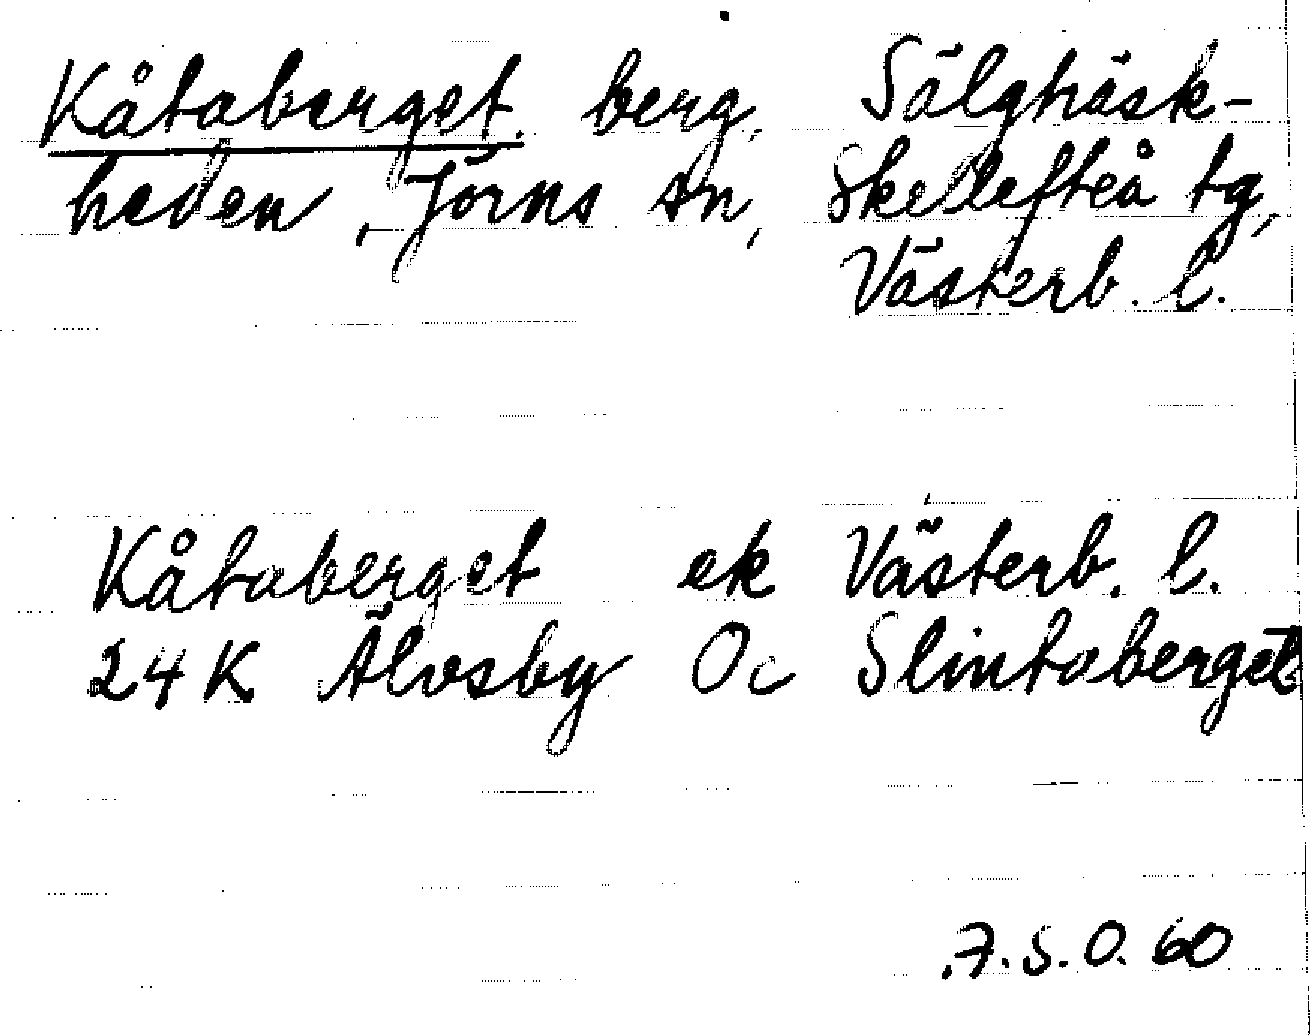 Kåtaberget, berg, Sälgträsk-
heden, Jörns sn, Skellefteå tg,
Västerb. l.
Kåtaberget ek Västerb. l.
24K Älvsby Oc Slintaberget
F.S.O. 60